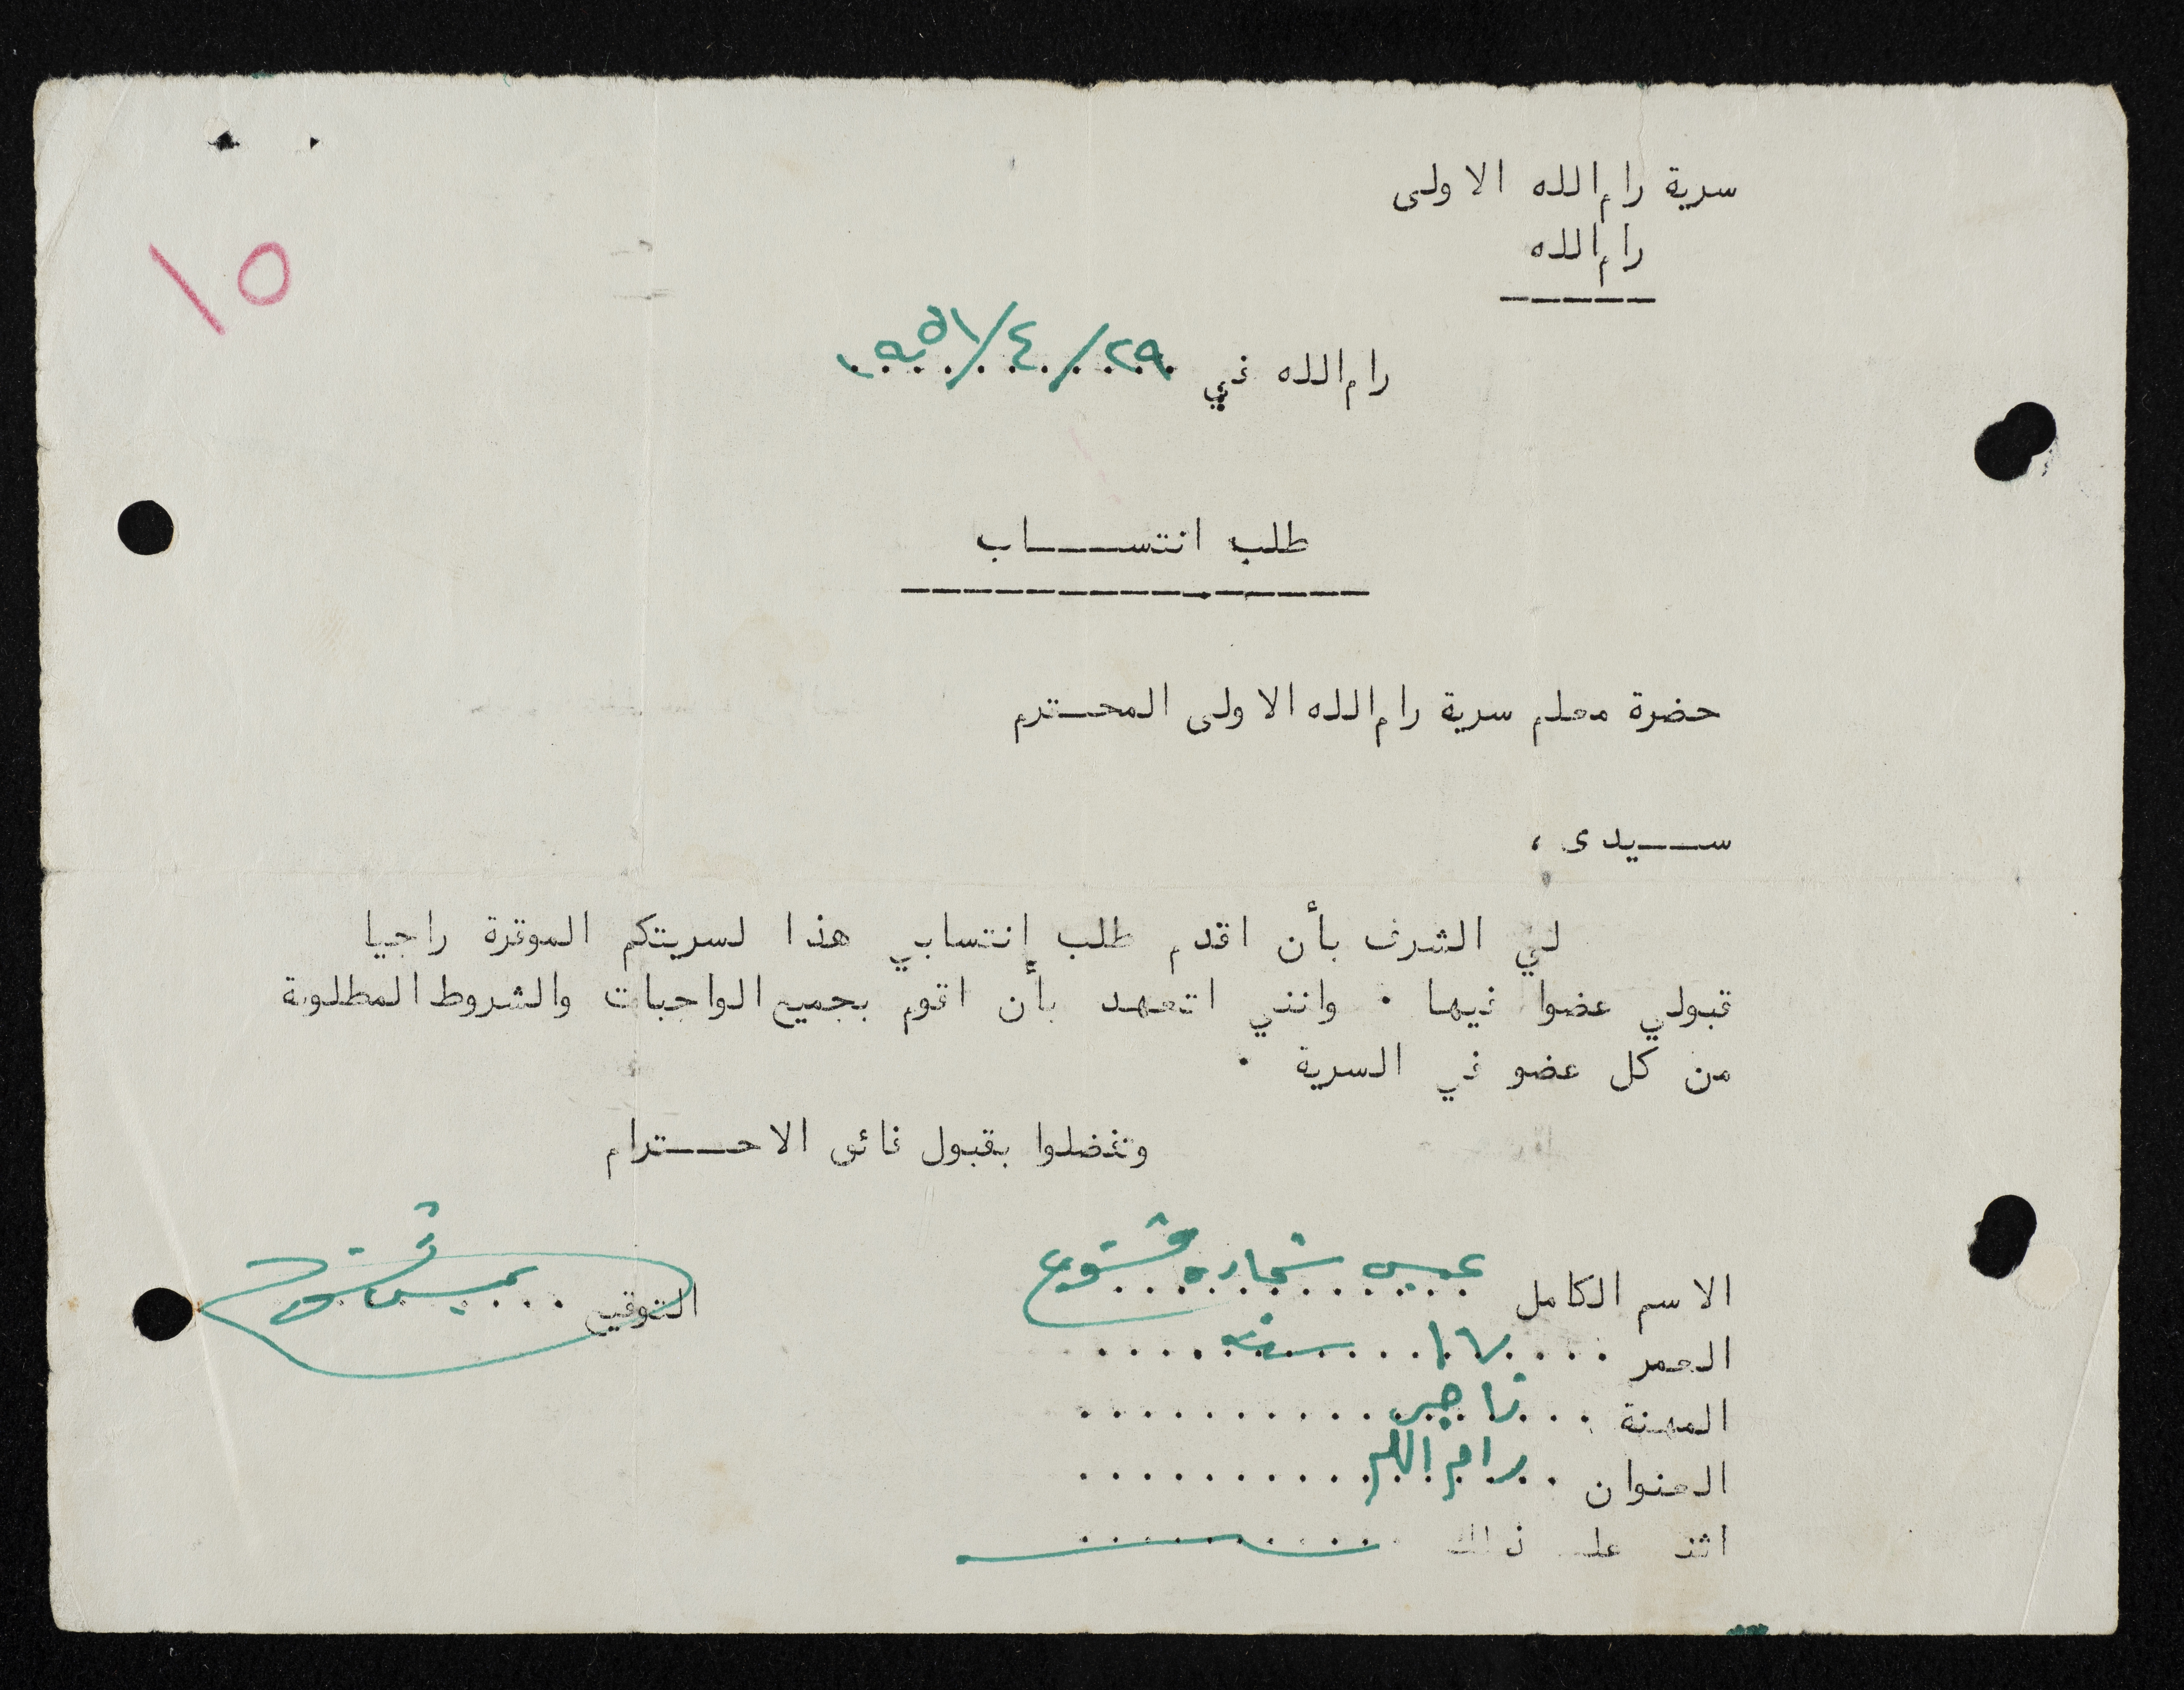 سرية رام الله الاولى
رام الله
١٥
رام الله في ٢٩/٤/١٩٥١
طلب انتســـاب
حضرة معلم سرية رام الله الاولى المحـترم
ســـيدى ،
لي الشرف بأن اقدم طلب إنتسابي هذا لسريتكم الموقرة راجيا
قبولي عضوا فيها ٠ وانني اتعهد بأن اقوم بجميع الواجبات والشروط المطلوبة
من كل عضو في السرية ٠
وتفضلوا بقبول فائق الاحـــترام
الاسم الكامل عيسى شحاده قسوع
التوقيع
العمر ١٧ سنه
المهنة تاجر
العنوان رام الله
ذلك